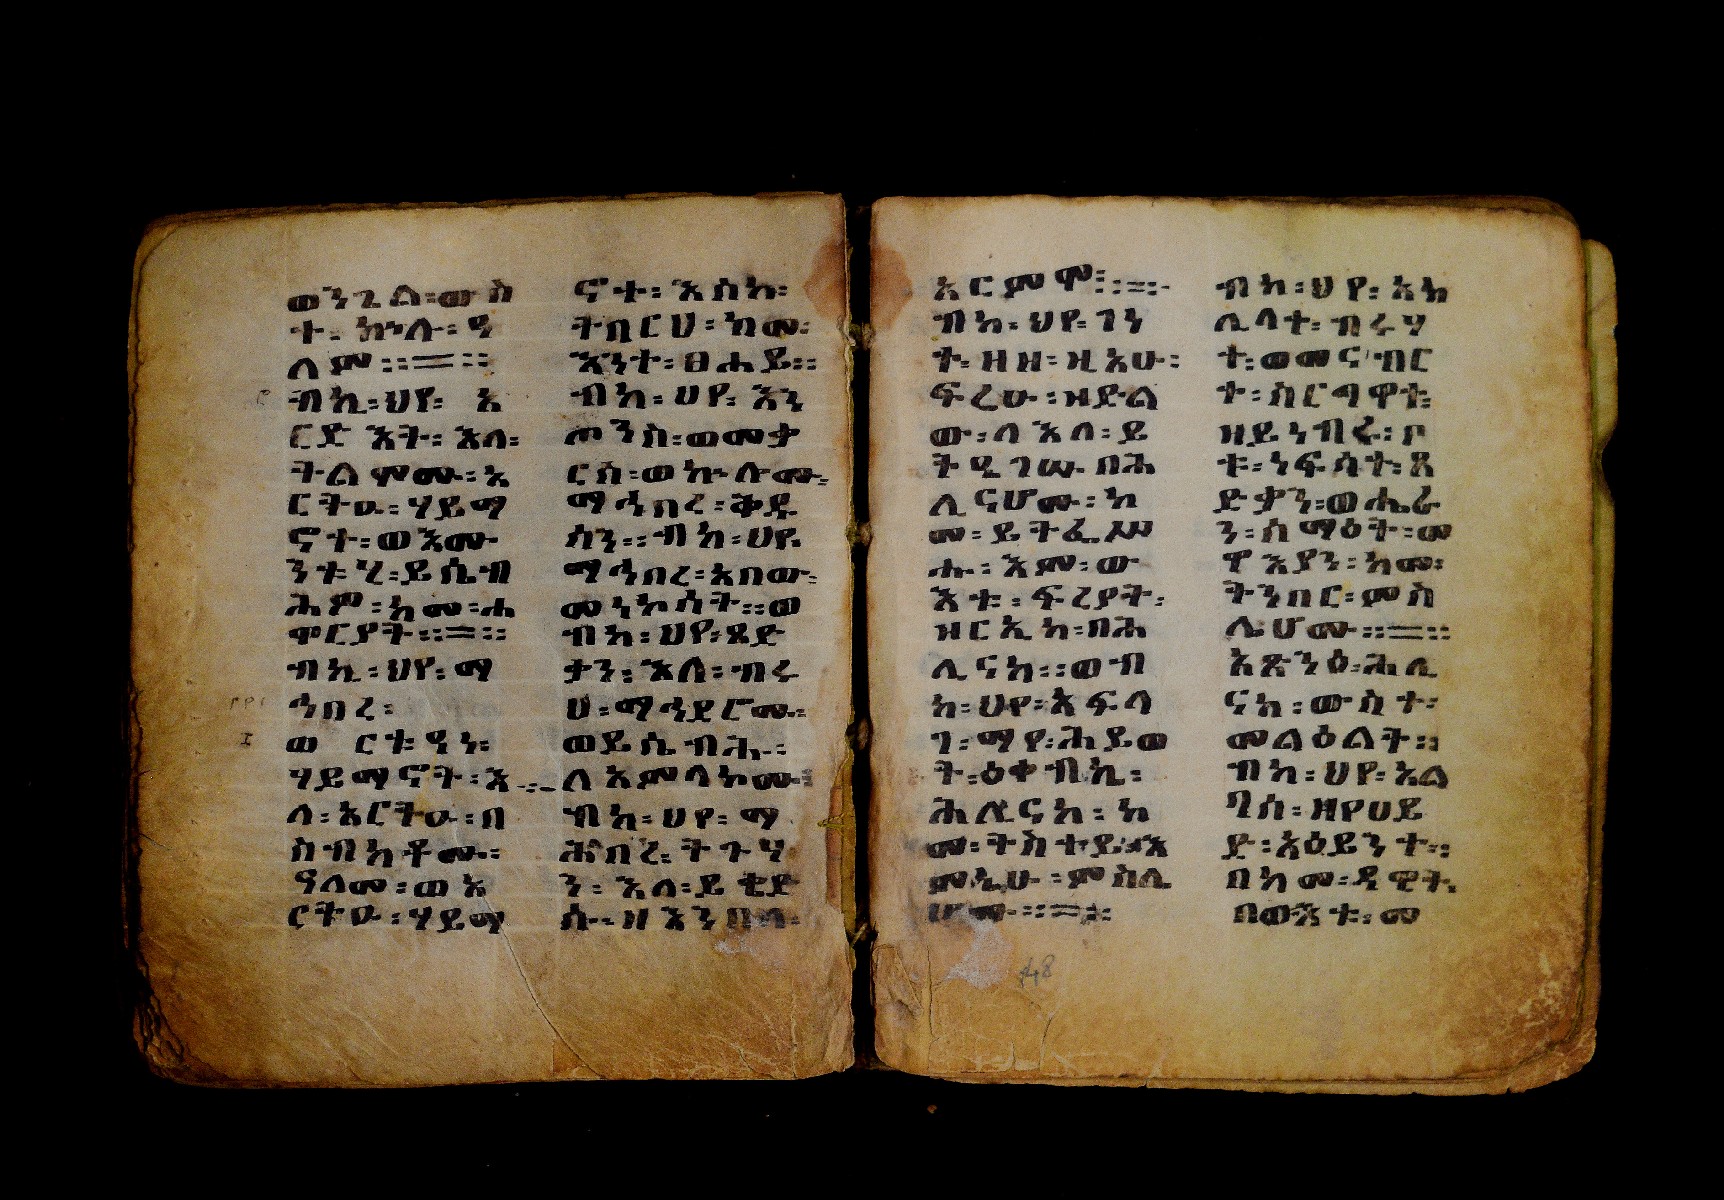 ወንጌል፡ወስ
ተ፡ ኵሉ፡ ዓ
ለም፡፡=፡፡
ብኪ፡ህየ፡ አ
ርድእት፡ እለ፡
ትልምሙ፡አ
ርትዑ፡ሃይማ
ኖተ፡ወእሙ
ንቱሂ፡ይሴብ
ሕም፡ከመ፡ሐ
ዋርያት፡፡=፡፡
ብኪ፡ህየ፡ማ
ኅበረ፡
ወ ርቱዓነ፡
ሃይማኖት፡እ
ለ፡አርትዑ፡በ
ስብከቶሙ፡
ዓለመ፡ወአ
ርትዑ፡ሃይማ
ኖተ፡እስከ፡
ትበርህ፡ከመ፡
እንተ፡ፀሐይ፡፡
ብከ፡ህየ፡እን
ጦንስ፡ወመቃ
ርስ፡ወኵሉሙ፡
ማኅበረ፡ቅዱ
ሳን፡፡ብከ፡ህየ
ማኅበረ፡አበው፡
መነኮሳት፡፡ወ
ብከ፡ህየ፡ጻድ
ቃን፡እለ፡ብሩ
ህ፡ማኅደሮሙ፡
ወይሴብሑ፡
ለአምላኮሙ፡
ብከ፡ህየ፡ማ
ሕበረ፡ትጉሃ
ን፡እለ፡ይቄድ
ሱ፡ዘእንበለ፡
አርምሞ፡፡=፡
ብከ፡ህየ፡ገነ
ት፡ዘዘ፡ዚአሁ፡
ፍሬሁ፡ዝድል
ው፡ለእለ፡ይ
ትዔገሡ በሕ
ሊናሆሙ፡ከ
መ፡ይትፌሥ
ሑ፡እም፡ው
እቱ፡ፍሬያት፡
ዝርኢከ፡በሕ
ሊናከ፡፡ወብ
ከ፡ህየ፡አፍላ
ገ፡ማየ፡ሕይወ
ት፡ዕቀብኪ፡
ሕሊናከ፡ከ
መ፡ትስተይ፡እ
ምኔሁ፡ምስሌ
ሆሙ፡፡=፡
ብከ፡ህየ፡አክ
ሊላተ፡ብሩሃ
ተ፡ወመናብር
ተ፡ስርግዋተ፡
ዘይነብሩ፡ቦ
ቱ፡ነፍሳተ፡ጻ
ድቃን፡ወሖራ
ን፡ሰማዕት፡መ
ዋእያን፡ከመ፡
ትንበር፡ምስ
ሌሆሙ፡፡=፡፡
አጽንዕ፡ሕሊ
ናከ፡ውስተ፡
መልዕልት፡፡
ብከ፡ህየ፡አል
ባሰ፡ዘየሀይ
ድ፡አዕይንተ፡፡
በከመ፡ዳዊት
በውእቱ፡መ
48